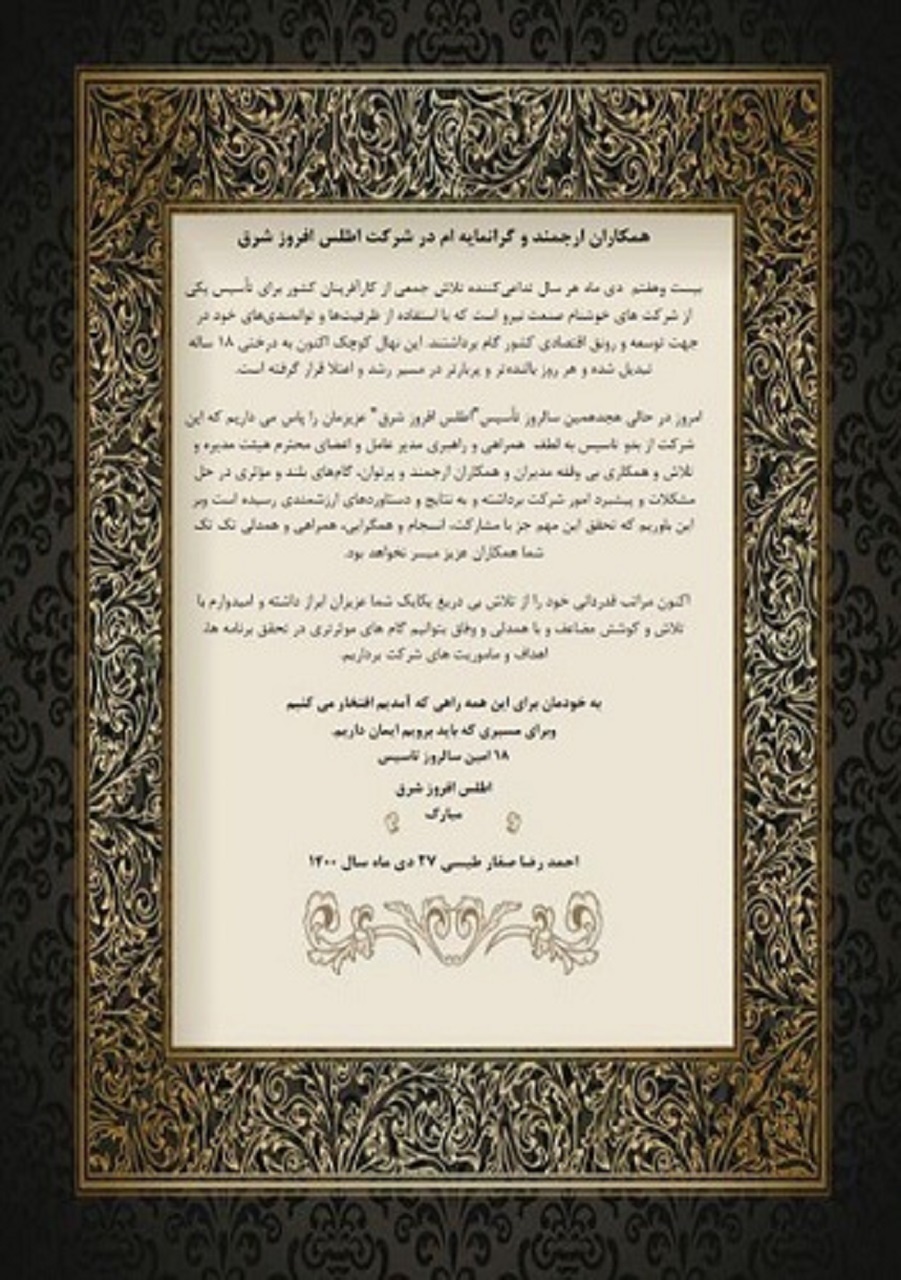 همکاران ارجمند و گرانمایه ام در شرکت اطلس افروز شرق
بیست وهفتم دی ماه هر سال تداعی‌کننده تلاش جمعی از کارآفرینان کشور برای تأسیس یکی
از شرکت های خوشنام صنعت نیرو است که با استفاده از ظرفیت‌ها و توانمندی‌های خود در
جهت توسعه و رونق اقتصادی کشور گام برداشتند. این نهال کوچک اکنون به درختی ۱۸ ساله
تبدیل شده و هر روز بالنده‌تر و پربارتر در مسیر رشد و اعتلا قرار گرفته است.
امروز در حالی هجدهمین سالروز تأسیس"اطلس افروز شرق" عزیزمان را پاس می داریم که این
شرکت از بدو تاسیس به لطف همراهی و راهبری مدیر عامل و اعضای محترم هیئت مدیره و
تلاش و همکاری بی وقفه مدیران و همکاران ارجمند و پرتوان، گام‌های بلند و مؤثری در حل
مشکلات و پیشبرد امور شرکت برداشته و به نتایج و دستاوردهای ارزشمندی رسیده است وبر
این باوریم که تحقق این مهم جز با مشارکت، انسجام و همگرایی، همراهی و همدلی تک تک
شما همکاران عزیز میسر نخواهد بود.
اکنون مراتب قدردانی خود را از تلاش بی دریغ یکایک شما عزیزان ابراز داشته و امیدوارم با
تلاش و کوشش مضاعف و با همدلی و وفاق بتوانیم گام های موثرتری در تحقق برنامه ها،
اهداف و ماموریت های شرکت برداریم.
به خودمان برای این همه راهی که آمدیم افتخار می کنیم
وبرای مسیری که باید برویم ایمان داریم.
۱۸ امین سالروز تاسیس
اطلس افروز شرق
مبارک
احمد رضا صفار طبسی ۲۷ دی ماه سال ۱۴۰۰